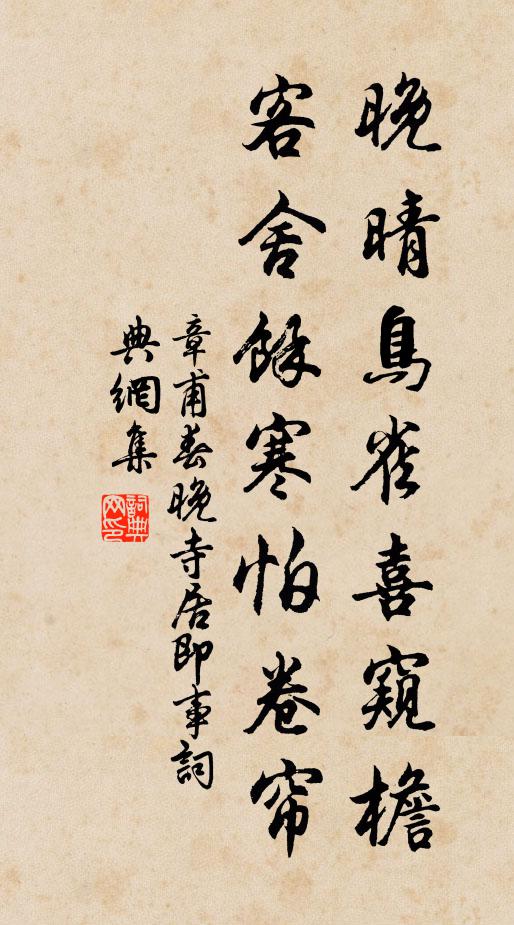 晚晴鳥雀喜窺檐
客舍餘寒怕卷帘
章甫春晚寺居即事詞
典網集
詞典網印